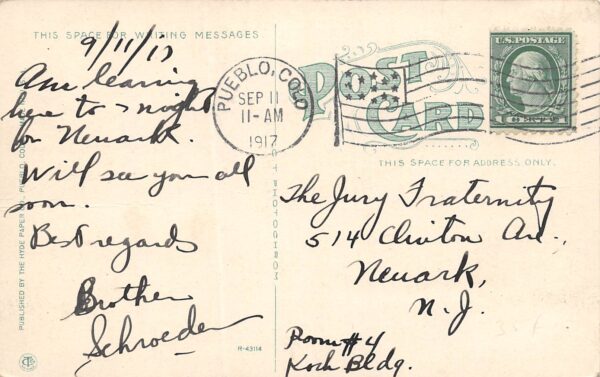 THIS SPACE FOR WRITING MESSAGES
9/11/17
Am leaving
here to-night
for Newark.
Will see you all
soon.
Best regards
Brother
Schroeder
PUBLISHED BY THE HYDE PAPER CO. PUEBLO, COLO
R-43114
PUEBLO, COLO
SEP 11
11-AM
1917
POST
CARD
U.S. POSTAGE
THIS SPACE FOR ADDRESS ONLY.
The Jury Fraternity
514 Clinton Ave.,
Newark,
N. J.
Room #4
Koch Bldg.